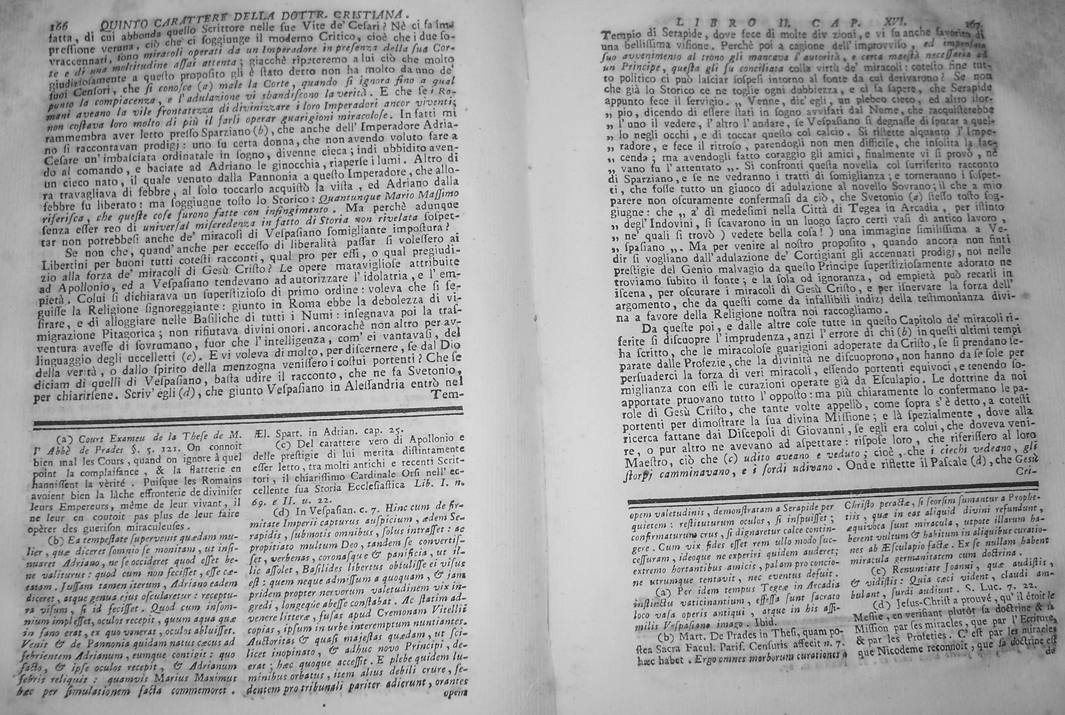 166 QUINTO CARATTERE DELLA DOTTR. CRISTIANA.
fatta, di cui abbonda quello Scrittore nelle sue Vite de' Cesari? Nè ci fa im-
pressione veruna, ciò che ci soggiunge il moderno Critico, cioè che i due so-
vraccennati, sono miracoli operati da un Imperadore in presenza della sua Cor-
te e di una moltitudine assai attenta; giacchè ripeteremo a lui ciò che molto
giudiziosamente a questo proposito gli è stato detto non ha molto da uno de'
suoi Censori, che si conosce (a) male la Corte, quando si ignora fino a qual
punto la compiacenza, e l'adulazione vi sbandiscono la verità. E che se i Ro-
mani aveano la vile frontatezza di divinizzare i loro Imperadori ancor viventi,
non costava loro molto di più il farli operar guarigioni miracolose. In fatti mi
rammembra aver letto presso Sparziano (b), che anche dell'Imperadore Adria-
no si raccontavan prodigi: uno su certa donna, che non avendo voluto fare a
Cesare un'imbasciata ordinatale in sogno, divenne cieca; indi ubbidito aven-
do al comando, e baciate ad Adriano le ginocchia, riaperse i lumi. Altro di
un cieco nato, il quale venuto dalla Pannonia a questo Imperadore, che allo-
ra travagliava di febbre, al solo toccarlo acquistò la vista, ed Adriano dalla
febbre fu liberato: ma soggiugne tosto lo Storico: Quantunque Mario Massimo
riferisca, che queste cose furono fatte con infingimento. Ma perchè adunque
senza esser reo di universal miscredenza in fatto di Storia non rivelata sospet-
tar non potrebbesi anche de' miracoli di Vespasiano somigliante impostura?
Se non che, quand'anche per eccesso di liberalità passar si volessero ai
Libertini per buoni tutti cotesti racconti, qual pro per essi, o qual pregiudi-
zio alla forza de' miracoli di Gesù Cristo? Le opere maravigliose attribuite
ad Apollonio, ed a Vespasiano tendevano ad autorizzare l'idolatria, e l'em-
pietà. Colui si dichiarava un superstizioso di primo ordine: voleva che si se-
guisse la Religione signoreggiante: giunto in Roma ebbe la debolezza di vi-
sitare, e di alloggiare nelle Basiliche di tutti i Numi: insegnava poi la tras-
migrazione Pitagorica; non rifiutava divini onori, ancorachè non altro per av-
ventura avesse di sovrumano, fuor che l'intelligenza, com'ei vantavasi, del
linguaggio degli uccelletti (c). E vi voleva di molto, per discernere, se dal Dio
della verità, o dallo spirito della menzogna venissero i costui portenti? Che se
diciam di quelli di Vespasiano, basta udire il racconto, che ne fa Svetonio,
per chiarirsene. Scriv'egli (d), che giunto Vespasiano in Alessandria entrò nel
Tem-
(a) Court Exameu de la These de M.
l'Abbè de Prades §. 5. 121. On connoit
bien mal les Cours, quand on ignore à quel
point la complaisance, & la flatterie en
bannissent la vèritè. Puisque les Romains
avoient bien la lâche effronterie de diviniser
leurs Empereurs, même de leur vivant, il
ne leur en coutoit pas plus de leur faire
opèrer des guerison miraculeuses.
(b) Ea tempestate supervenit quædam mu-
lier, quæ diceret somnio se monitam, ut insi-
nuaret Adriano, ne se occideret quod esset be-
ne valiturus: quod cum non fecisset, esse cæ-
catam. Jussam tamen iterum, Adriano eadem
diceret, atque genua ejus oscularetur: receptu-
ra visum, si id fecisset. Quod cum insom-
nium implesset, oculos recepit, quum aqua quæ
in fano erat, ex quo venerat, oculos abluisset.
Venit & de Pannonia quidam natus cæcus ad
febrientem Adrianum, eumque contigit: quo
facto, & ipse oculos recepit, & Adrianum
febris reliquit: quamvis Marius Maximus
hæc per simulationem facta commemoret.
Æl. Spart. in Adrian. cap. 25.
(c) Del carattere vero di Apollonio e
delle prestigie di lui merita distintamente
esser letto, tra molti antichi e recenti Scrit-
tori, il chiarissimo Cardinale Orsi nell'ec-
cellente sua Storia Ecclesiastica Lib. I. n.
69. e II. u. 22.
(d) In Vespasian. c. 7. Hinc cum de fir-
mitate Imperii capturus auspicium, ædem Se-
rapidis, submotis omnibus, solus intrasset: ac
propitiato multum Deo, tandem se convertis-
set, verbenas, coronasque & panificia, ut il-
lic assolet, Basilides libertus obtulisse ei visus
est: quem neque admissum a quoquam, & jam
pridem propter nervorum valetudinem vix in-
gredi, longeque abesse constabat. Ac statim ad-
venere litteræ, fusas apud Cremonam Vitellii
copias, ipsum in urbe interemptum nuntiantes.
Auctoritas & quasi majestas quædam, ut sci-
licet inopinato, & adhuc novo Principi, de-
erat; hæc quoque accessit. E plebe quidam lu-
minibus orbatus, item alius debili crure, se-
dentem pro tribunali pariter adierunt, orantes
opem
LIBRO II. CAP. XVI. 167
Tempio di Serapide, dove fece di molte divozioni, e vi fu anche favorito di
una bellissima visione. Perchè poi a cagione dell'improvviso, ed impensato
suo avvenimento al trono gli mancava l'autorità, e certa maestà necessaria ad
un Principe, questa gli fu conciliata colla virtù de' miracoli: cotesto fine tut-
to politico ci può lasciar sospesi intorno al fonte da cui derivarono? Se non
che già lo Storico ce ne toglie ogni dubbiezza, e ci fa sapere, che Serapide
appunto fece il servigio. „ Venne, dic'egli, un plebeo cieco, ed altro stor-
„ pio, dicendo di essere stati in sogno avvisati dal Nume, che racquisterebbe
„ l'uno il vedere, l'altro l'andare, se Vespasiano si degnasse di sputar a quel-
„ lo negli occhi, e di toccar questo col calcio. Si ristette alquanto l'Impe-
„ radore, e fece il ritroso, parendogli non men difficile, che insolita la fac-
„ cenda; ma avendogli fatto coraggio gli amici, finalmente vi si provò, nè
„ vano fu l'attentato „. Si confronti questa novella col surriferito racconto
di Sparziano, e se ne vedranno i tratti di somiglianza; e torneranno i sospet-
ti, che fosse tutto un giuoco di adulazione al novello Sovrano; il che a mio
parere non oscuramente confermasi da ciò, che Svetonio (a) stesso tosto sog-
giugne: che „ a' dì medesimi nella Città di Tegea in Arcadia, per istinto
„ degl'Indovini, si scavarono in un luogo sacro certi vasi di antico lavoro,
„ ne' quali si trovò) vedete bella cosa!) una immagine similissima a Ve-
„ spasiano „. Ma per venire al nostro proposito, quando ancora non finti
dir si vogliano dall'adulazione de' Cortigiani gli accennati prodigj, noi nelle
prestigie del Genio malvagio da questo Principe superstiziosamente adorato ne
troviamo subito il fonte; e la sola od ignoranza, od empietà può recarli in
iscena, per oscurare i miracoli di Gesù Cristo, e per isnervare la forza dell'
argomento, che da questi come da infallibili indizj della testimonianza divi-
na a favore della Religione nostra noi raccogliamo.
Da queste poi, e dalle altre cose tutte in questo Capitolo de' miracoli ri-
ferite si discuopre l'imprudenza, anzi l'errore di chi (b) in questi ultimi tempi
ha scritto, che le miracolose guarigioni adoperate da Cristo, se si prendano se-
parate dalle Profezie, che la divinità ne discuoprono, non hanno da se sole per
persuaderci la forza di veri miracoli, essendo portenti equivoci, e tenendo so-
miglianza con essi le curazioni operate già da Esculapio. Le dottrine da noi
apportate pruovano tutto l'opposto: ma più chiaramente lo confermano le pa-
role di Gesù Cristo, che tante volte appellò, come sopra s'è detto, a cotesti
portenti per dimostrare la sua divina Missione; e là spezialmente, dove alla
ricerca fattane dai Discepoli di Giovanni, se egli era colui, che doveva veni-
re, o pur altro ne avevano ad aspettare: rispose loro, che riferissero al loro
Maestro, ciò che (c) udito aveano e veduto; cioè, che i ciechi vedeano, gli
storpj camminavano, e i sordi udivano. Onde riflette il Pascale (d), che Gesù
Cri-
opem valetudinis, demonstratam a Serapide per
quietem: restituturum oculos, si inspuisset;
confirmaturum crus, si dignaretur calce contin-
gere. Cum vix fides esset rem ullo modo suc-
cessuram, ideoque ne experiri quidem auderet;
extremo hortantibus amicis, palam pro concio-
ne utrumque tentavit, nec eventus defuit.
(a) Per idem tempus Tegeæ in Arcadia
instinctu vaticinantium, effossa sunt sacrato
loco vasa operis antiqui, atque in his assi-
milis Vespasiano imago. Ibid.
(b) Mart. De Prades in Thesi, quam po-
stea Sacra Facul. Paris. Censuris affecit n. 7.
hæc habet. Ergo omnes morborum curationes a
Christo peractæ, si seorsim sumantur a Prophe-
tiis, quæ in eas aliquid divini refundunt,
æquivoca sunt miracula, utpote illarum ha-
berent vultum & habitum in aliquibus curatio-
nes ab Æsculapio factæ. Ex se nullam habent
miracula germanitatem cum doctrina.
(c) Renuntiate Joanni, quæ audistis,
& vidistis: Quia cæci vident, claudi am-
bulant, surdi audiunt. S. Luc. 7. 22.
(d) Jesus-Christ a prouvé, qu'il étoit le
Messie, en verifiant plutôt sa doctrine & sa
Mission par ses miracles, que par l'Ecriture,
& par les Profeties. C'est par les miracles
que Nicodeme reconnoit, que sa doctrine est
de